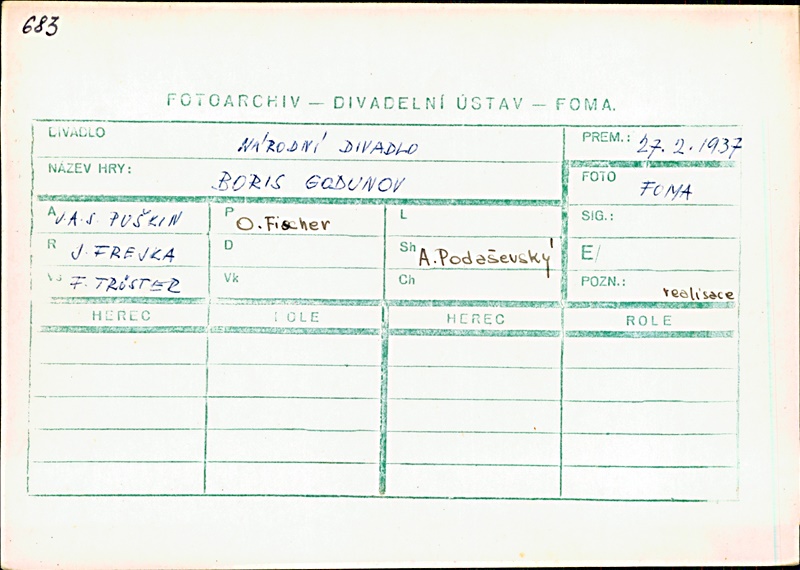 683
FOTOARCHIV — DIVADELNÍ ÚSTAV — FOMA.
DIVADLO NÁRODNÍ DIVADLO
PREM.: 27.2.1937
NÁZEV HRY: BORIS GODUNOV
FOTO FOMA
A A.S. PUŠKIN
P O. Fischer
L
SIG.:
R J. FREJKA
D
Sh A. Podaševský
E/
Vs F. TRÖSTER
Vk
Ch
POZN.: realisace
HEREC ROLE HEREC ROLE